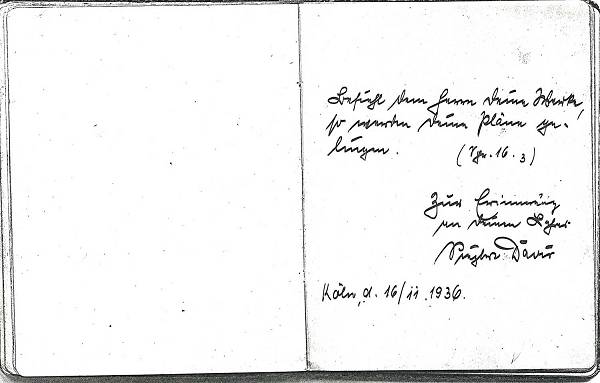 Befiehl dem Herrn Deine Werke,
so werden Deine Pläne ge-
lingen. (Spr. 16. 3)
Zur Erinnerung
an Deinen
Köln, d. 16/11. 1936.